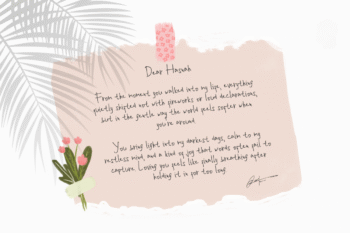 Dear Hasnah
From the moment you walked into my life, everything
quietly shifted not with fireworks or loud declarations,
but in the gentle way the world feels softer when
you're around
You bring light into my darkest days, calm to my
restless mind, and a kind of joy that words often fail to
capture. Loving you feels like finally breathing after
holding it in for too long